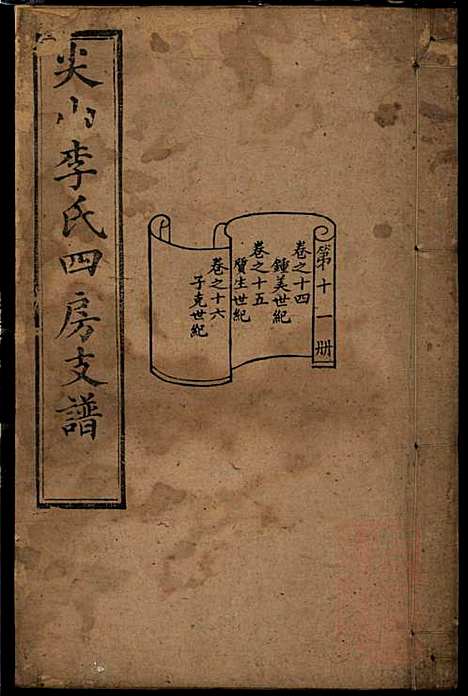 尖山李氏四房支譜
第十一册
卷之十四
鍾美世紀
卷之十五
質生世紀
卷之十六
子克世紀